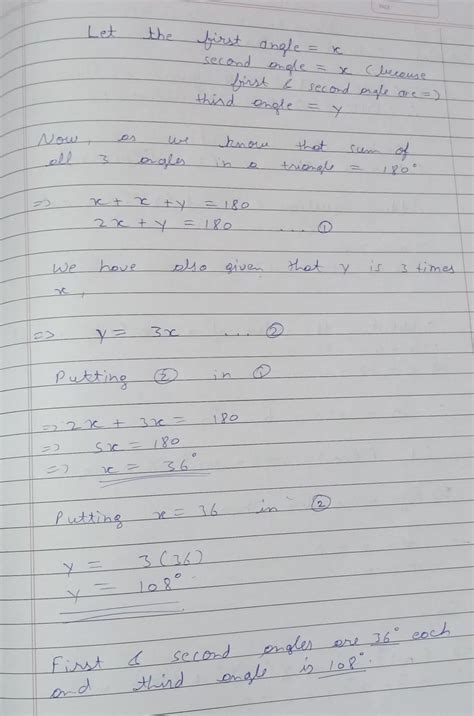 Let the first angle = x
second angle = x (because
first & second angle are =)
third angle = y
Now, as we know that sum of
all 3 angles in a triangle = 180°
=> x + x + y = 180
2x + y = 180 ... ①
We have also given that y is 3 times
x,
=> y = 3x ... ②
Putting ② in ①
=> 2x + 3x = 180
=> 5x = 180
=> x = 36°
Putting x = 36 in ②
y = 3(36)
y = 108°
First & second angles are 36° each
and third angle is 108°.